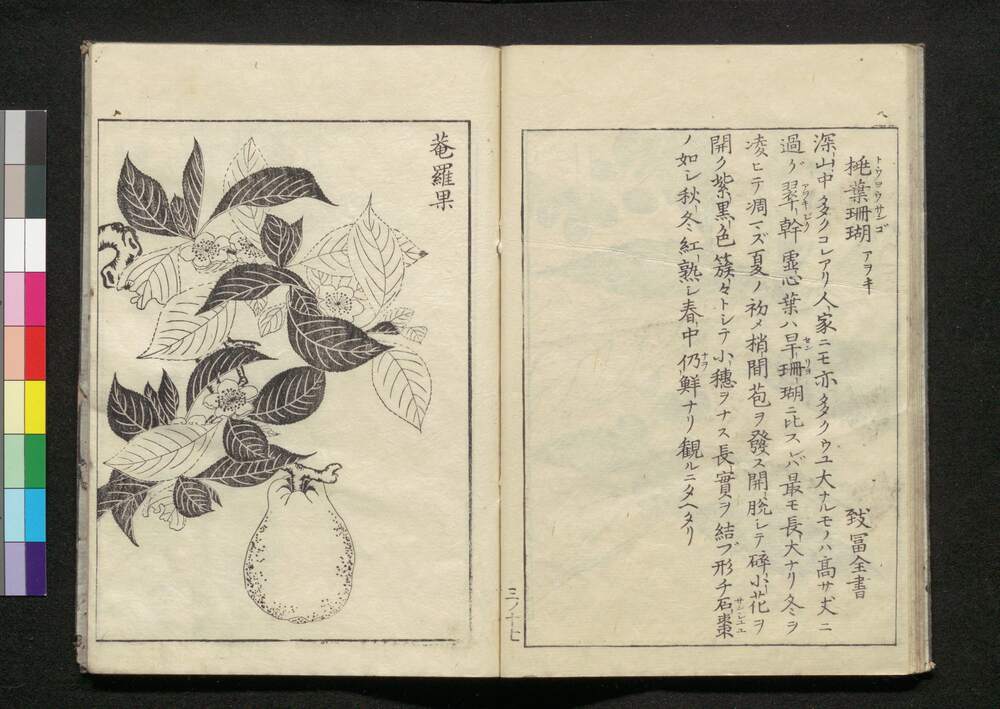 桃葉珊瑚 アヲキ 致冨全書
トウヨウサンゴ
深山中多クコレアリ人家ニモ亦多クウユ大ナルモノハ高サ丈ニ
過グ翠幹靈心葉ハ旱珊瑚ニ比スレバ最モ長大ナリ冬ヲ
センリヨ
凌ヒテ凋マズ夏ノ初メ梢間苞ヲ發ス開脱シテ碎小花ヲ
開ク紫黒色簇々トシテ小穗ヲナス長實ヲ結ブ形チ石棗
ノ如シ秋冬紅熟シ春中仍鮮ナリ觀ルニタヘタリ
ナヲ
三ノ十七
菴羅果